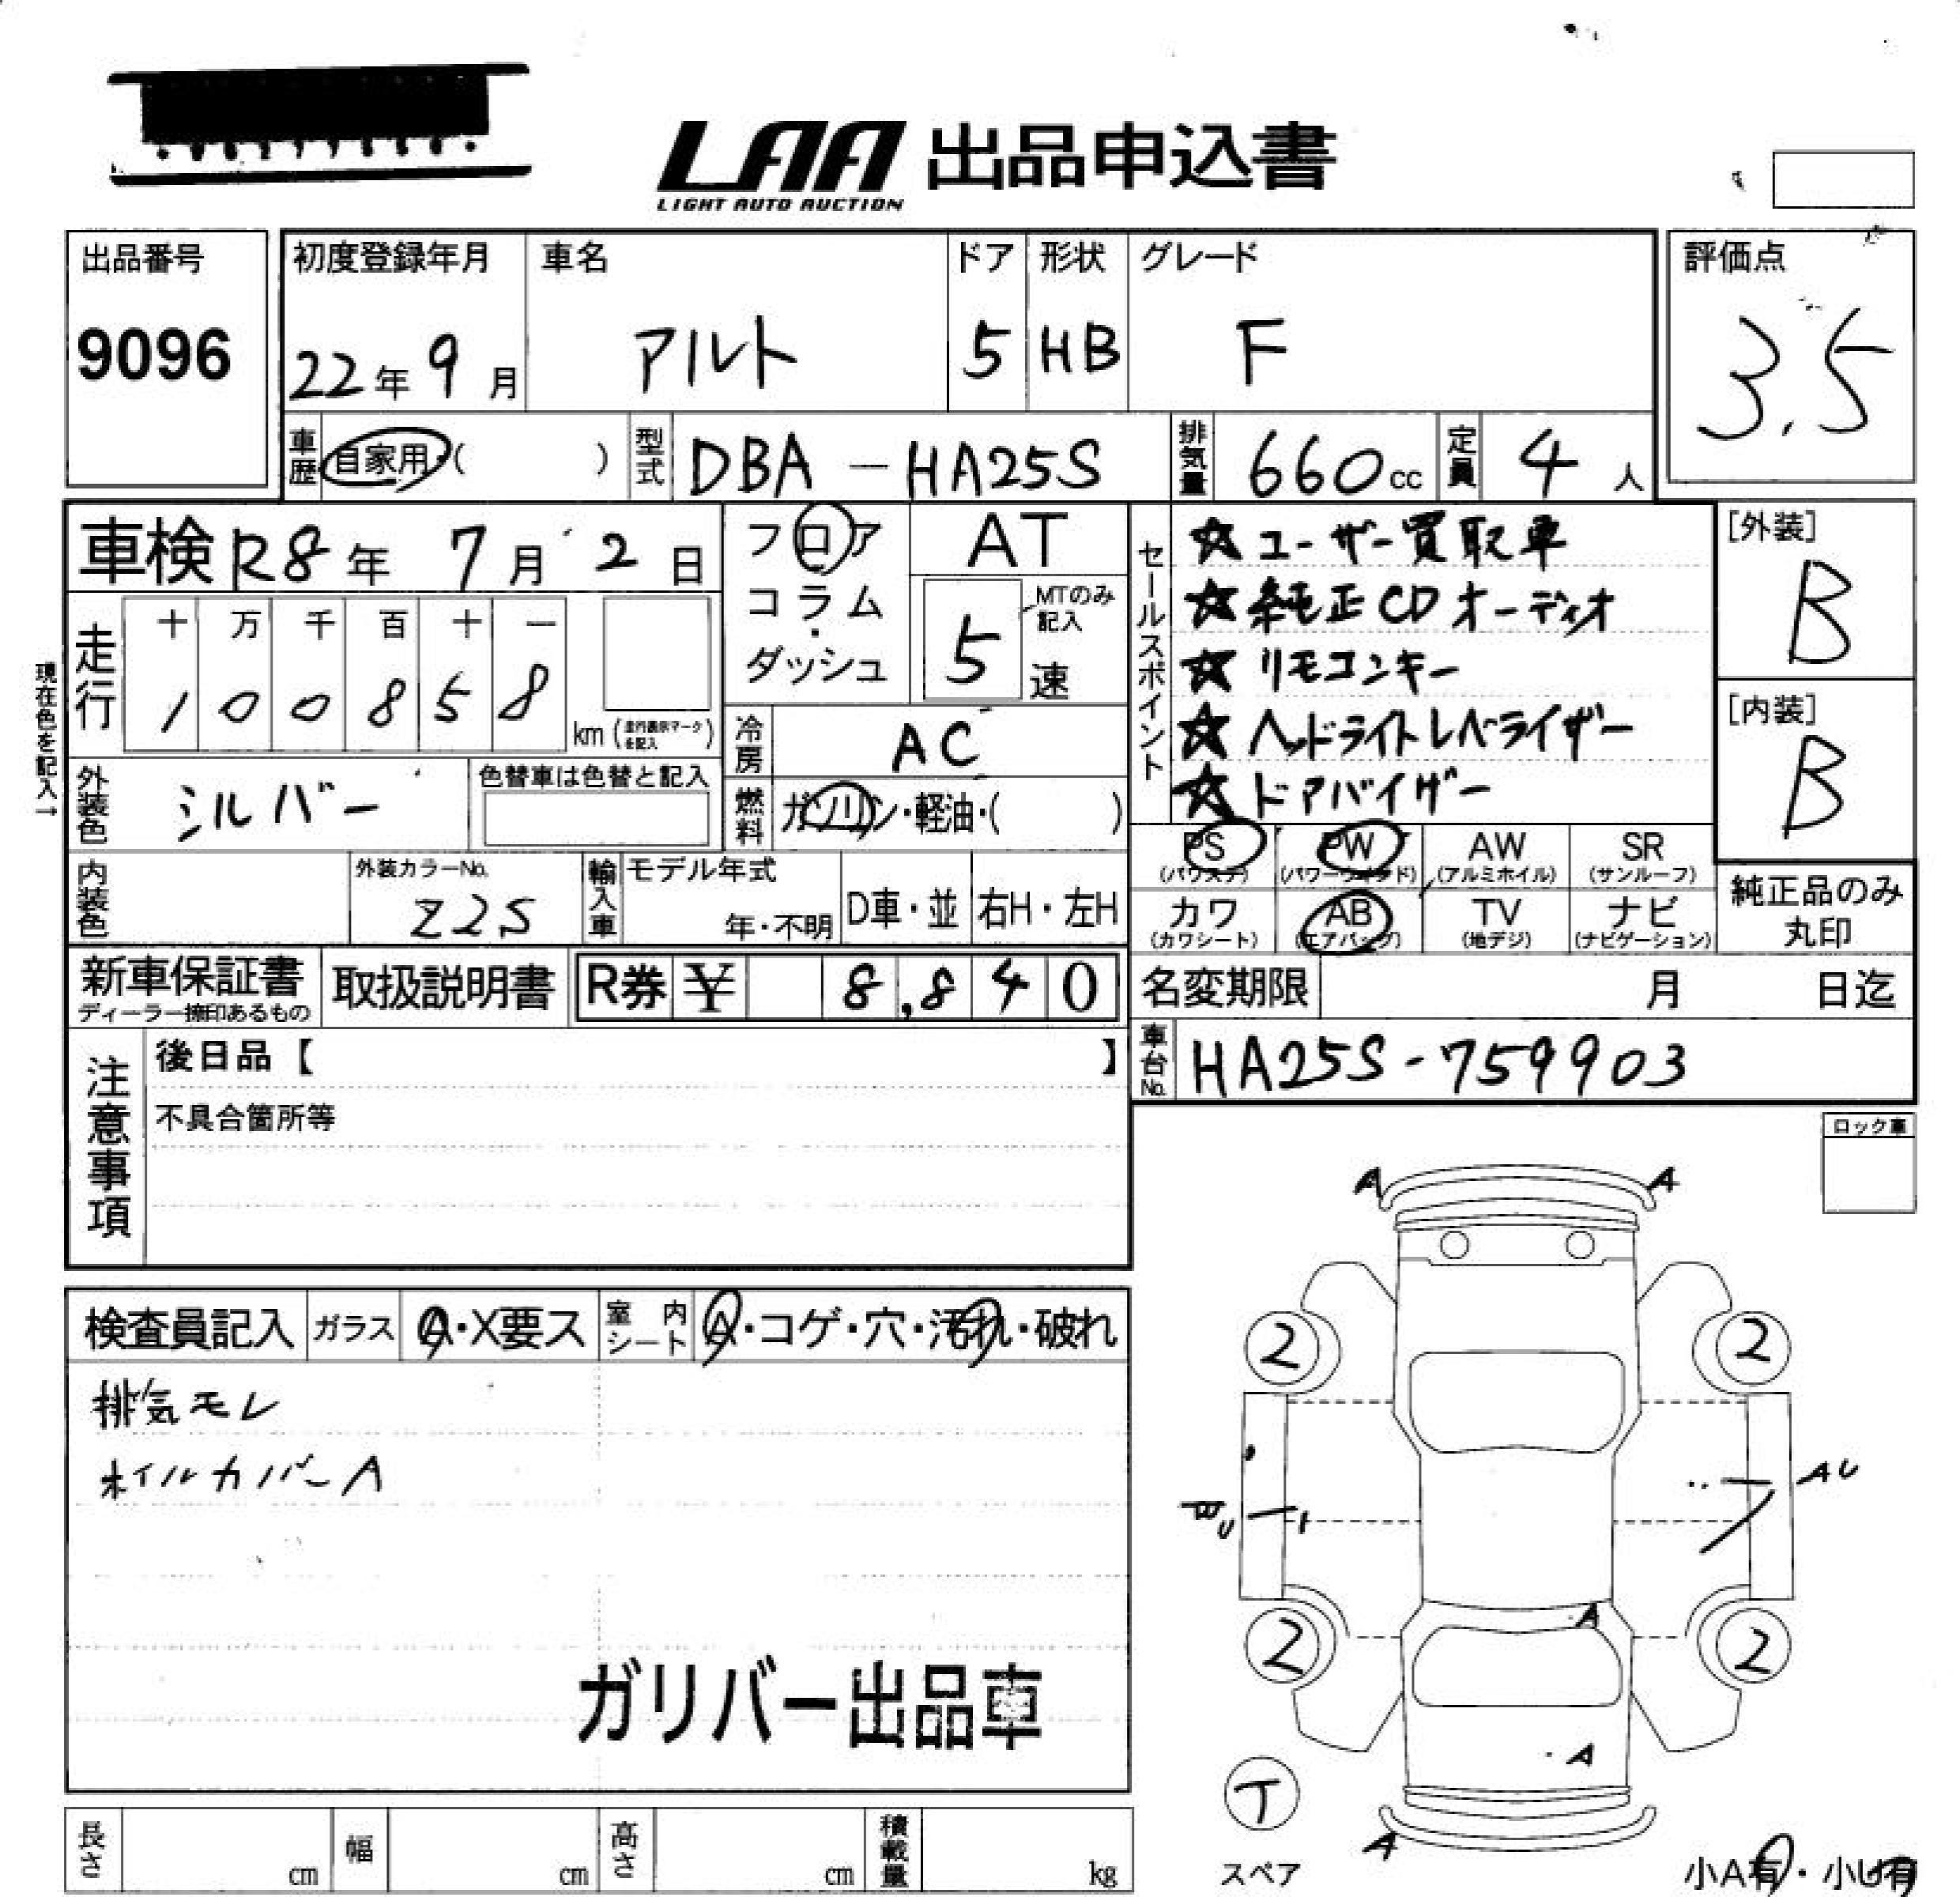 LAA 出品申込書
LIGHT AUTO AUCTION
出品番号
9096
初度登録年月
22年9月
車名
アルト
ドア
5
形状
HB
グレード
F
評価点
3.5
車歴 自家用・( )
型式 DBA-HA25S
排気量 660cc
定員 4人
車検 R8年 7月 2日
フロア
コラム
・
ダッシュ
AT
5
MTのみ
記入
速
走行
十 万 千 百 十 一
1 0 0 8 5 8
km(走行表示マークを記入)
現在色を記入→
冷房 AC
外装色 シルバー
色替車は色替と記入
燃料 ガソリン・軽油・( )
内装色
外装カラーNo.
Z2S
輸入車
モデル年式
年・不明
D車・並
右H・左H
セールスポイント
☆ユーザー買取車
☆純正CDオーディオ
☆リモコンキー
☆ヘッドライトレベライザー
☆ドアバイザー
[外装]
B
[内装]
B
PS
(パワステ)
PW
(パワーウインド)
AW
(アルミホイル)
SR
(サンルーフ)
カワ
(カワシート)
AB
(エアバッグ)
TV
(地デジ)
ナビ
(ナビゲーション)
純正品のみ
丸印
新車保証書
ディーラー捺印あるもの
取扱説明書
R券 ¥ 8,840
名変期限 月 日迄
車台No. HA25S-759903
注意事項
後日品【 】
不具合箇所等
ロック車
検査員記入
ガラス A・X要ス
室内シート A・コゲ・穴・汚れ・破れ
排気モレ
ホイルカバーA
ガリバー出品車
A A
2 2
AU
A
2 2
A
A
T
スペア
小A有・小U有
長さ cm
幅 cm
高さ cm
積載量 kg